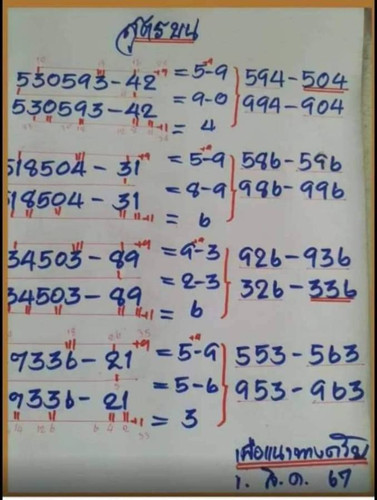 สูตรบน
530593-42 = 5-9 594-504
530593-42 = 9-0 994-904
= 4
518504-31 = 5-9 586-596
518504-31 = 8-9 986-996
= 6
34503-89 = 9-3 926-936
34503-89 = 2-3 326-336
= 6
97336-21 = 5-9 553-563
9336-21 = 5-6 953-963
= 3
เพื่อแนวทางครับ
1. ส.ค. 67